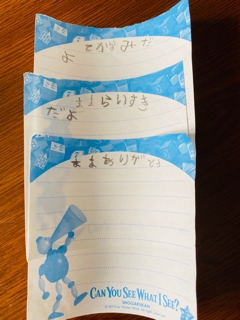 てがみだ
よ
ままらいすき
だよ
ままありがとう
CAN YOU SEE WHAT I SEE?
SHOGAKUKAN